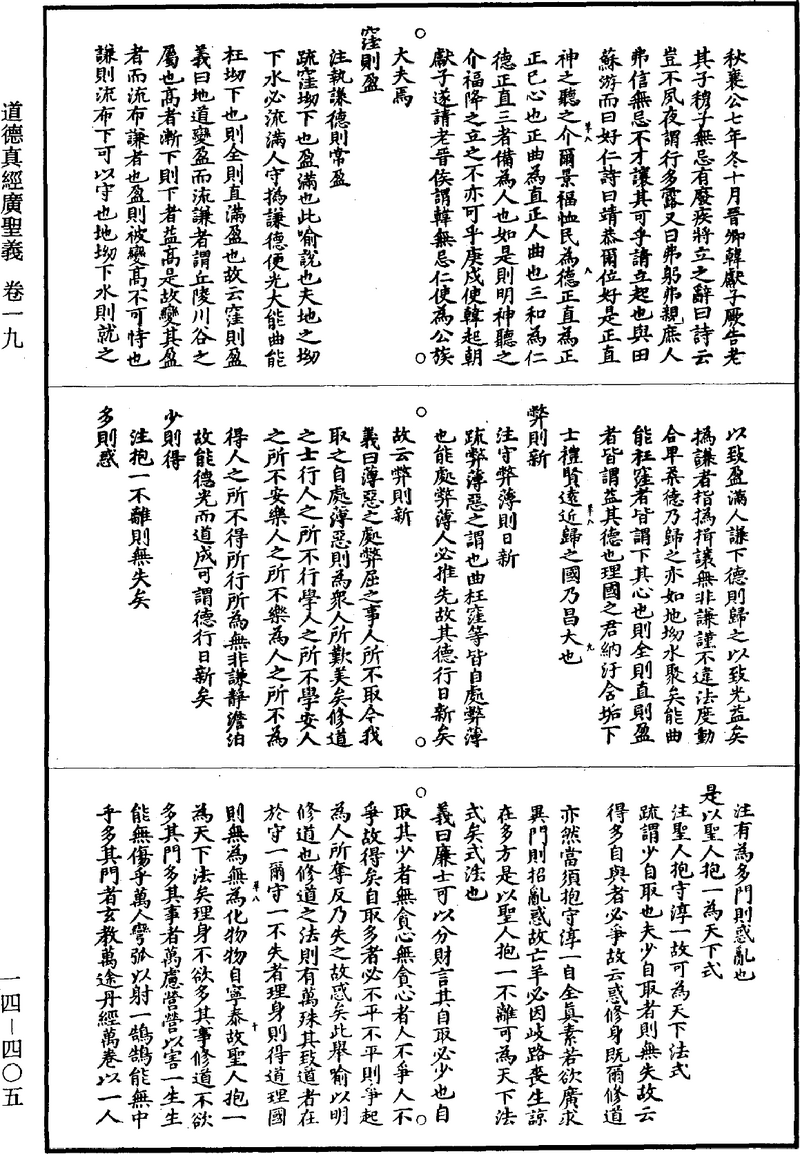 道德真經廣聖義 卷一九
一四－四〇五
秋襄公七年冬十月晉卿韓獻子厥告老
其子穆子無忌有廢疾將立之辭曰詩云
豈不夙夜謂行多露又曰弗躬弗親庶人
弗信無忌不才讓其可乎請立起也與田
蘇游而曰好仁詩曰靖恭爾位好是正直
神之聽之介爾景福恤民為德正直為正
正己心也正曲為直正人曲也三和為仁
德正直三者備為人也如是則明神聽之
介福降之立之不亦可乎庚戌使韓起朝
獻子遂請老晉侯謂韓無忌仁使為公族
大夫焉
窪則盈
注執謙德則常盈
疏窪坳下也盈滿也此喻說也夫地之坳
下水必流滿人守撝謙德便光大能曲能
枉坳下也則全則直滿盈也故云窪則盈
義曰地道變盈而流謙者謂丘陵川谷之
屬也高者漸下則下者益高是故變其盈
者而流布謙者也盈則被變高不可恃也
謙則流布下可以守也地坳下水則就之
以致盈滿人謙下德則歸之以致光益矣
撝謙者指撝揖讓無非謙謹不違法度動
合卑柔德乃歸之亦如地坳水聚矣能曲
能枉窪者皆謂下其心也則全則直則盈
者皆謂益其德也理國之君納汙含垢下
士禮賢遠近歸之國乃昌大也
弊則新
注守弊薄則日新
疏弊薄惡之謂也曲枉窪等皆自處弊薄
也能處弊薄人必推先故其德行日新矣
故云弊則新
義曰薄惡之處弊屈之事人所不取令我
取之自處薄惡則為眾人所歎美矣修道
之士行人之所不行學人之所不學安人
之所不安樂人之所不樂為人之所不為
得人之所不得所行所為無非謙靜澹泊
故能德光而道成可謂德行日新矣
少則得
注抱一不離則無失矣
多則惑
注有為多門則惑亂也
是以聖人抱一為天下式
注聖人抱守淳一故可為天下法式
疏謂少自取也夫少自取者則無失故云
得多自與者必爭故云惑修身既爾修道
亦然當須抱守淳一自全真素若欲廣求
異門則招亂惑故亡羊必因歧路喪生諒
在多方是以聖人抱一不離可為天下法
式矣式法也
義曰廉士可以分財言其自取必少也自
取其少者無貪心無貪心者人不爭人不
爭故得矣自取多者必不平不平則爭起
為人所奪反乃失之故惑矣此舉喻以明
修道也修道之法則有萬殊其致道者在
於守一爾守一不失者理身則得道理國
則無為無為化物物自寧泰故聖人抱一
為天下法矣理身不欲多其事修道不欲
多其門多其事者萬慮營營以害一生生
能無傷乎萬人彎弧以射一鵠鵠能無中
乎多其門者玄教萬途丹經萬卷以一人